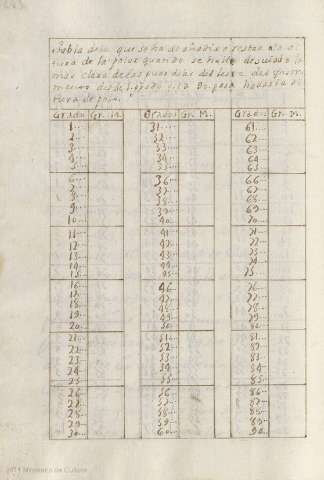 Tabla de lo que se ha de añadir o restar a la al
tura de la polar quando se halla
mas clara de las guardas del
desde 1. grado
tura de polo.
Grados Gr. M. Grados Gr. M. Grados Gr. M.
1 31 61
2 32 62
3 33 63
4 34 64
5 35 65
6 36 66
7 37 67
8 38 68
9 39 69
10 40 70
11 41 71
12 42 72
13 43 73
14 44 74
15 45 75
16 46 76
17 47 77
18 48 78
19 49 79
20 50 80
21 51 81
22 52 82
23 53 83
24 54 84
25 55 85
26 56 86
27 57 87
28 58 88
29 59 89
30 60 90
Ministerio de Cultura